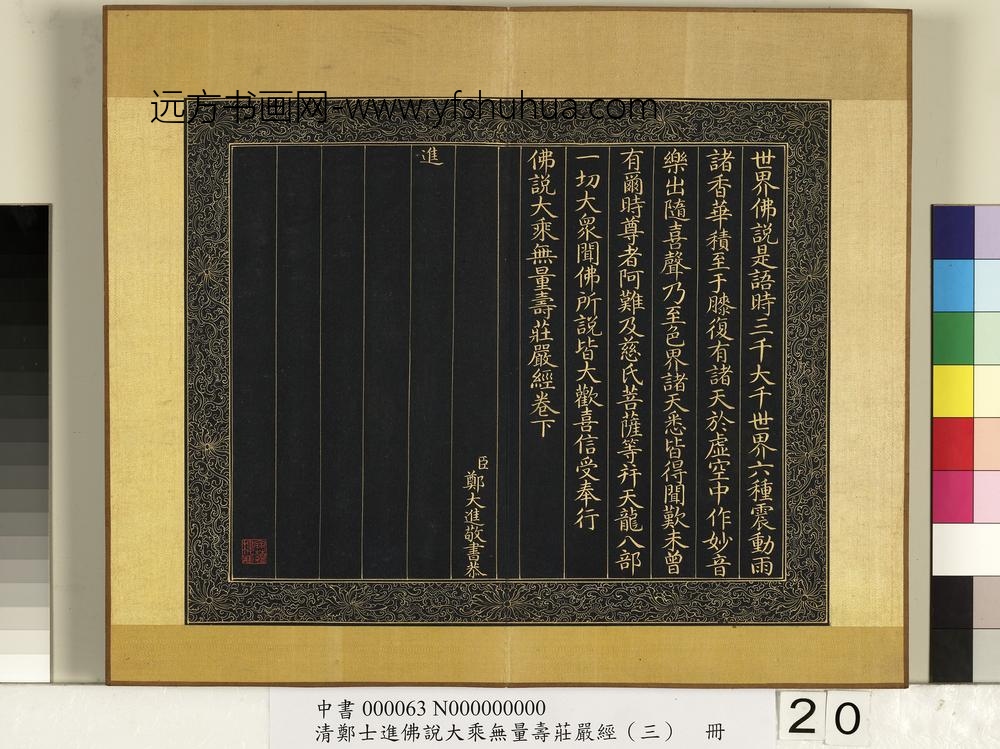 远方书画网-www.yfshuhua.com
世界佛說是語時三千大千世界六種震動雨
諸香華積至于膝復有諸天於虛空中作妙音
樂出隨喜聲乃至色界諸天悉皆得聞歎未曾
有爾時尊者阿難及慈氏菩薩等并天龍八部
一切大眾聞佛所說皆大歡喜信受奉行
佛說大乘無量壽莊嚴經卷下
臣鄭大進敬書恭
進
中書 000063 N000000000
清鄭士進佛說大乘無量壽莊嚴經（三） 冊
20